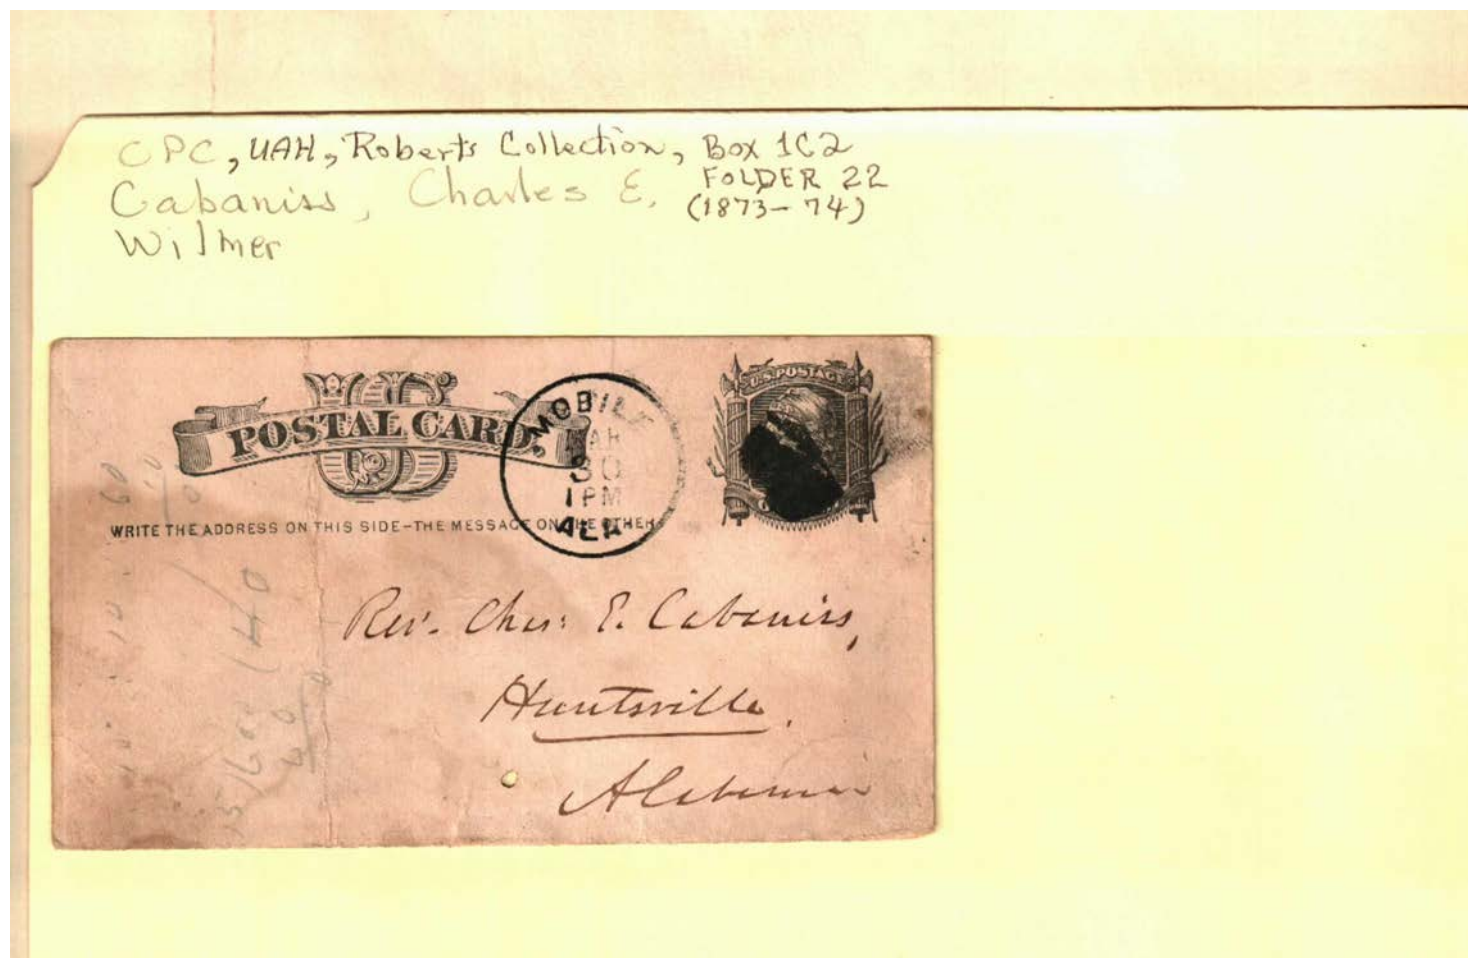 CPC, UAH, Roberts Collection, Box 1C2
FOLDER 22
Cabaniss, Charles E. (1873-74)
Wilmer
U.S. POSTAGE
POSTAL CARD
MOBILE
30
1 PM
ALA
WRITE THE ADDRESS ON THIS SIDE-THE MESSAGE ON THE OTHER
Rev. Chas: E. Cabaniss,
Huntsville.
Alabama